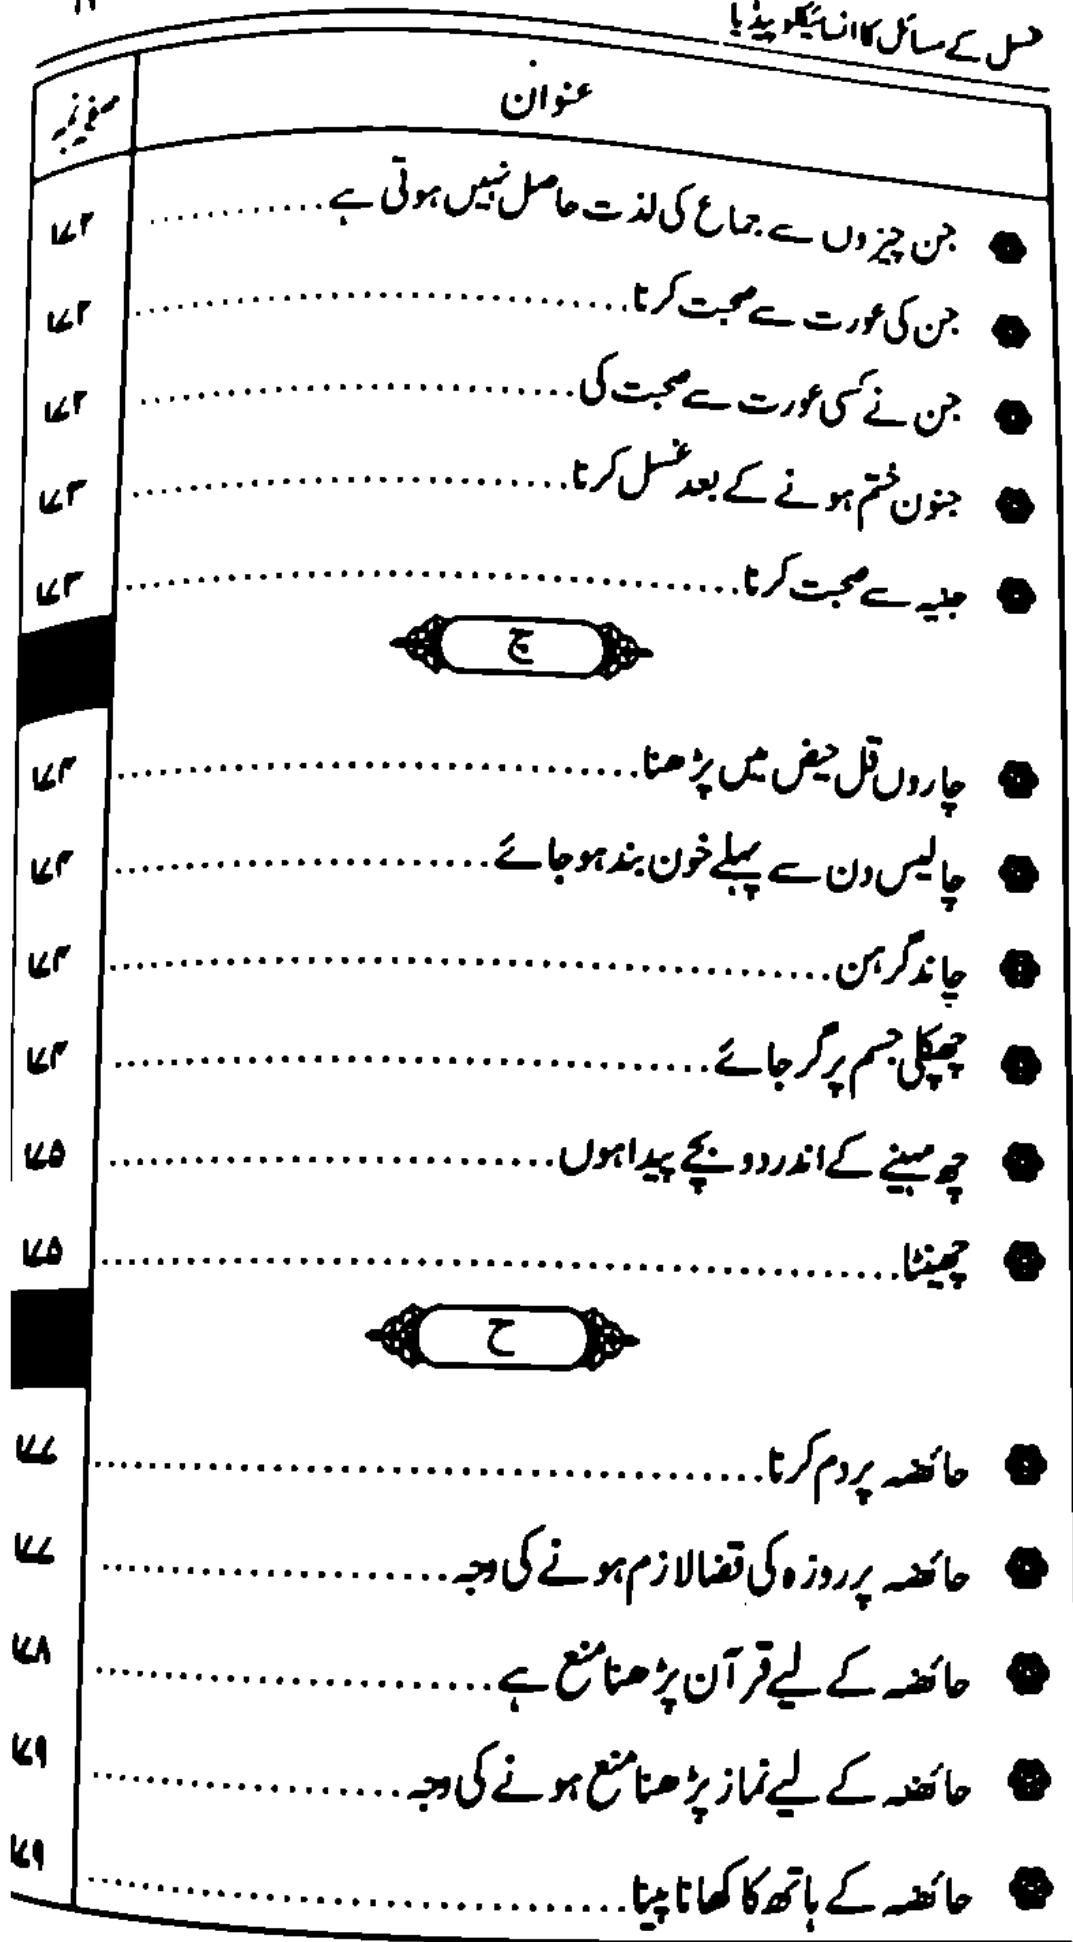 غسل کے مسائل کا انسائیکلوپیڈیا
عنوان صفحہ نمبر
جن چیزوں سے جماع کی لذت حاصل نہیں ہوتی ہے ۱۷۲
جن کی عورت سے صحبت کرنا ۱۷۲
جن نے کسی عورت سے صحبت کی ۱۷۲
جنون ختم ہونے کے بعد غسل کرنا ۱۷۳
جنیہ سے صحبت کرنا ۱۷۳
چ
چاروں قل حیض میں پڑھنا ۱۷۴
چالیس دن سے پہلے خون بند ہو جائے ۱۷۴
چاند گرہن ۱۷۴
چھپکلی جسم پر گر جائے ۱۷۴
چھ مہینے کے اندر دو بچے پیدا ہوں ۱۷۵
چھینٹا ۱۷۵
ح
حائضہ پر دم کرنا ۱۷۷
حائضہ پر روزہ کی قضا لازم ہونے کی وجہ ۱۷۷
حائضہ کے لیے قرآن پڑھنا منع ہے ۱۷۸
حائضہ کے لیے نماز پڑھنا منع ہونے کی وجہ ۱۷۹
حائضہ کے ہاتھ کا کھانا پینا ۱۷۹